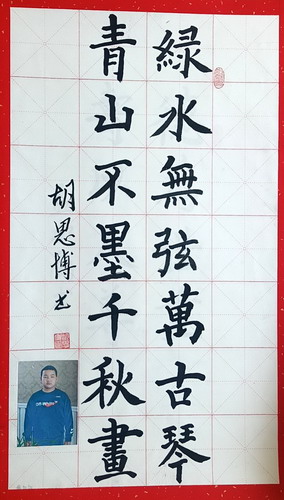 綠水無弦萬古琴
青山不墨千秋畫
胡思博书